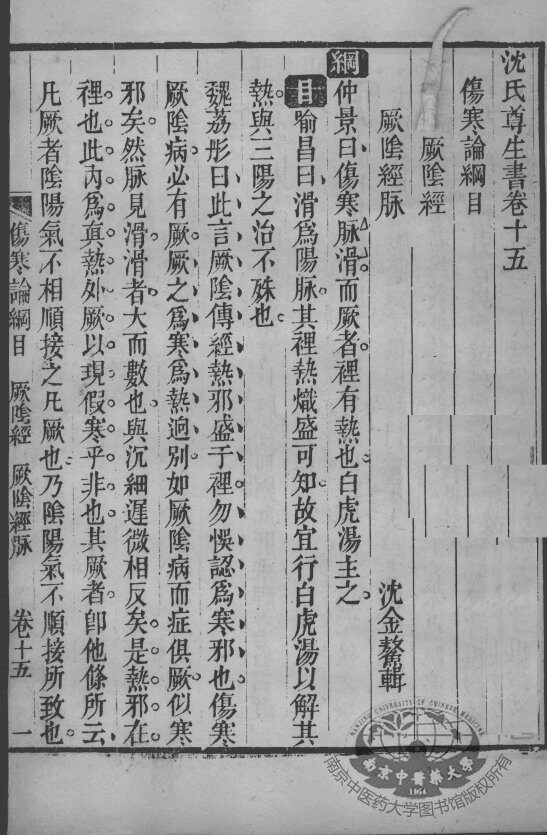 沈氏尊生書卷十五
傷寒論綱目
厥陰經
厥陰經脉
沈金鰲輯
綱仲景曰傷寒脉滑而厥者裡有熱也白虎湯主之
目喻昌曰滑爲陽脉其裡熱熾盛可知故宜行白虎湯以解其
熱與三陽之治不殊也
魏荔彤曰此言厥陰傳經熱邪盛于裡勿悞認爲寒邪也傷寒
厥陰病必有厥厥之爲寒爲熱逈別如厥陰病而症俱厥似寒
邪矣然脉見滑滑者大而數也與沉細遲微相反矣是熱邪在
裡也此內爲眞熱外厥以現假寒乎非也其厥者卽他條所云
凡厥者陰陽氣不相順接之凡厥也乃陰陽氣不順接所致也
傷寒論綱目 厥陰經 厥陰經脉 卷十五 一
NANJING UNIVERSITY OF CHINESE MEDICINE
南京中醫藥大學
1954
南京中医药大学图书馆版权所有